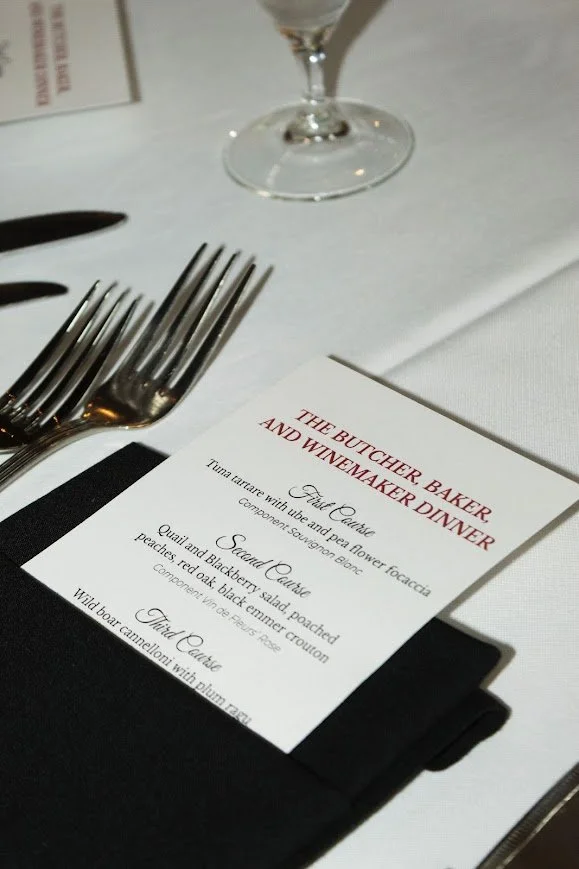 THE BUTCHER, BAKER,
AND WINEMAKER DINNER
First Course
Tuna tartare with ube and pea flower focaccia
Component Sauvignon Blanc
Second Course
Quail and Blackberry salad, poached
peaches, red oak, black emmer crouton
Component Vin de Fleurs' Rose
Third Course
Wild boar cannelloni with plum ragu
THE BUTCHER, BAKER,
AND WINEMAKER DINNER